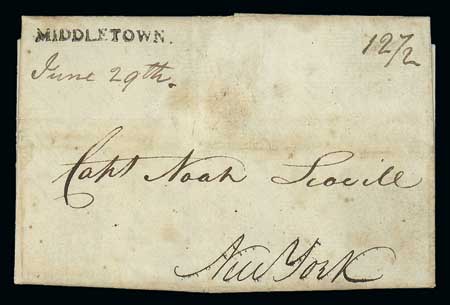 MIDDLETOWN.
12 1/2
June 29th.
Capt Noah Scovill
New York